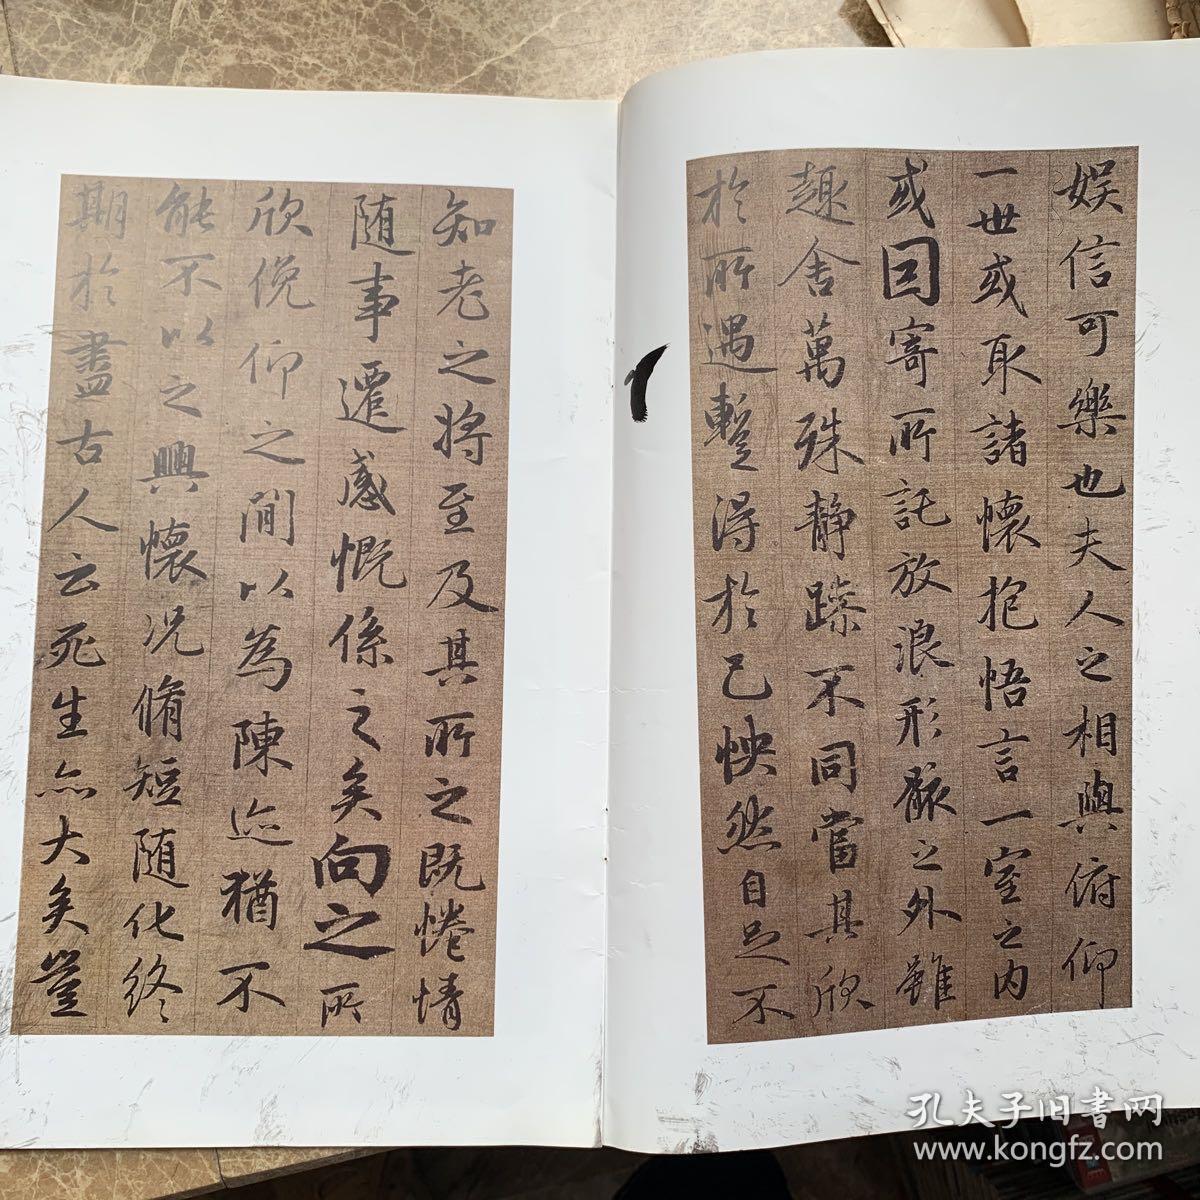 娱信可樂也夫人之相與俯仰
一世或取諸懷抱悟言一室之内
或因寄所託放浪形骸之外雖
趣舍萬殊静躁不同當其欣
於所遇蹔得於己怏然自足不
知老之將至及其所之既惓情
随事遷感慨係之矣向之所
欣俛仰之間以為陳迹猶不
能不以之興懷况脩短随化終
期於盡古人云死生亦大矣豈
孔夫子旧書网
www.kongfz.com